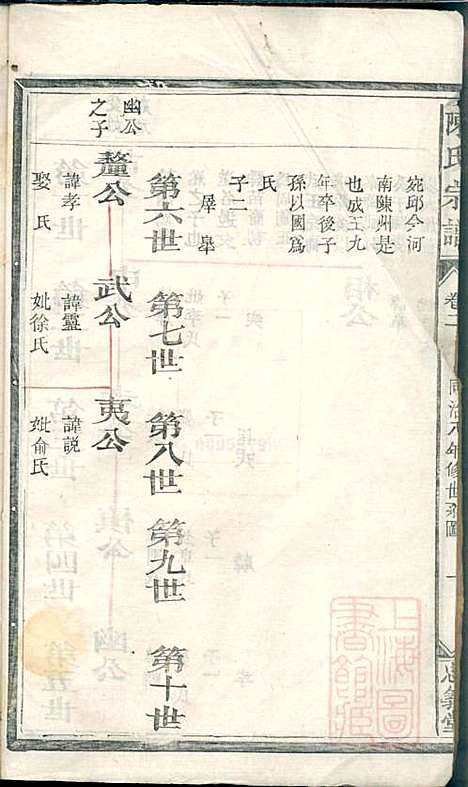 陳氏宗譜
卷一
同治八年修世系圖
一
忠義堂
宛邱今河
南陳州是
也成王九
年卒後子
孫以國爲
氏
子二
犀 皋
第六世 第七世 第八世 第九世 第十世
幽公
之子
釐公 武公 夷公
諱孝 諱靈 諱説
娶 氏 妣徐氏 妣俞氏
上海圖
書館藏